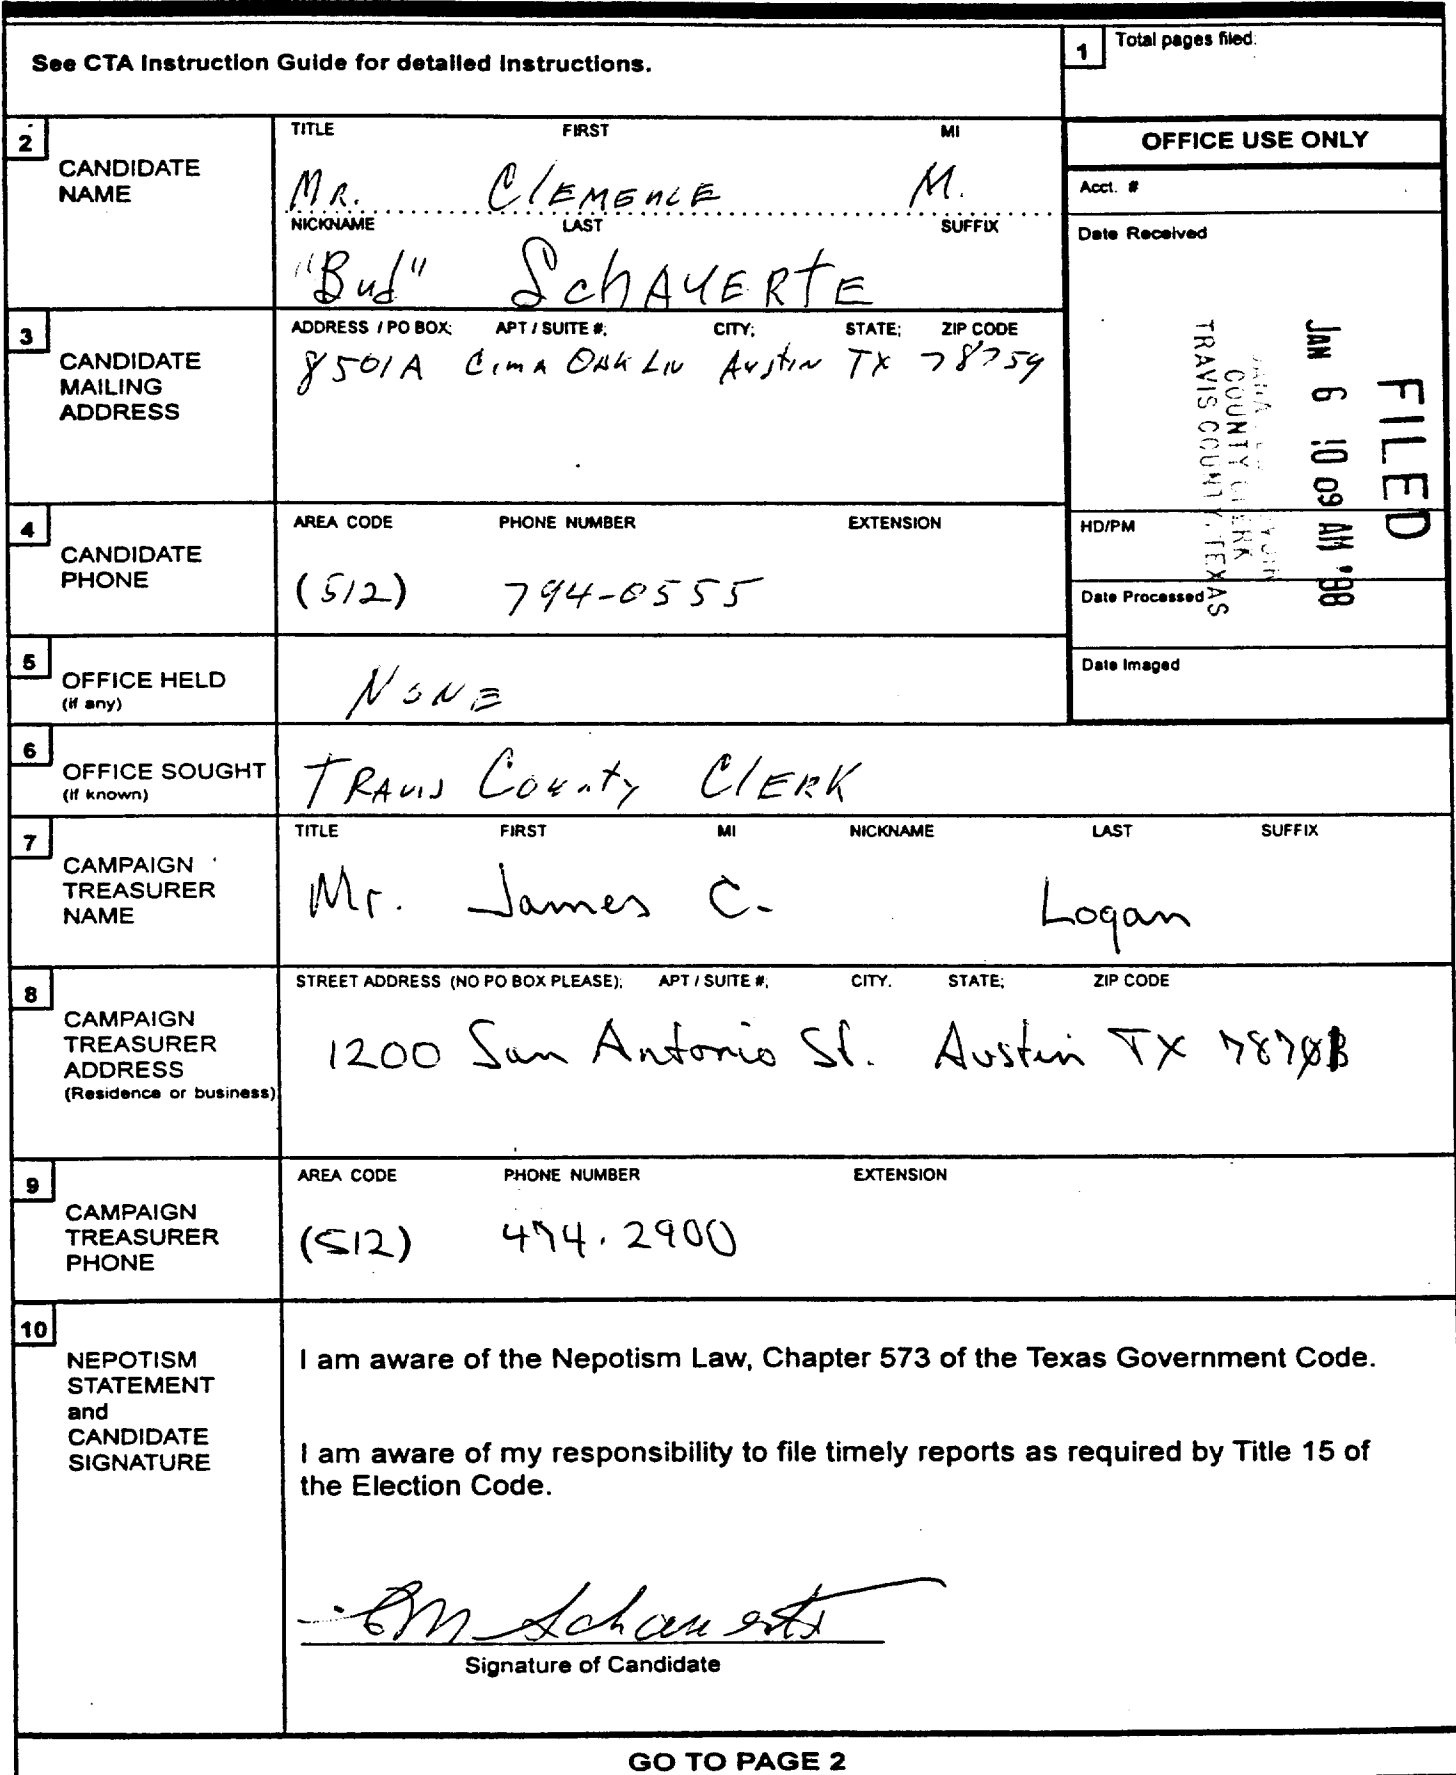 See CTA Instruction Guide for detailed instructions.
1 Total pages filed:
OFFICE USE ONLY
Acct. #
Date Received
FILED
JAN 6 10 09 AM '98
COUNTY CLERK
TRAVIS COUNTY, TEXAS
HD/PM
Date Processed
Date Imaged
2 CANDIDATE NAME
TITLE FIRST MI
Mr. Clemence M.
NICKNAME LAST SUFFIX
"Bud" Schauerte
3 CANDIDATE MAILING ADDRESS
ADDRESS / PO BOX; APT / SUITE #; CITY; STATE; ZIP CODE
8501A Cima Oak Ln Austin TX 78759
4 CANDIDATE PHONE
AREA CODE PHONE NUMBER EXTENSION
(512) 794-0555
5 OFFICE HELD (if any)
None
6 OFFICE SOUGHT (if known)
Travis County Clerk
7 CAMPAIGN TREASURER NAME
TITLE FIRST MI NICKNAME LAST SUFFIX
Mr. James C. Logan
8 CAMPAIGN TREASURER ADDRESS (Residence or business)
STREET ADDRESS (NO PO BOX PLEASE); APT / SUITE #; CITY. STATE; ZIP CODE
1200 San Antonio St. Austin TX
9 CAMPAIGN TREASURER PHONE
AREA CODE PHONE NUMBER EXTENSION
(512) 474.2900
10 NEPOTISM STATEMENT and CANDIDATE SIGNATURE
I am aware of the Nepotism Law, Chapter 573 of the Texas Government Code.
I am aware of my responsibility to file timely reports as required by Title 15 of
the Election Code.
CM Schauerte
Signature of Candidate
GO TO PAGE 2